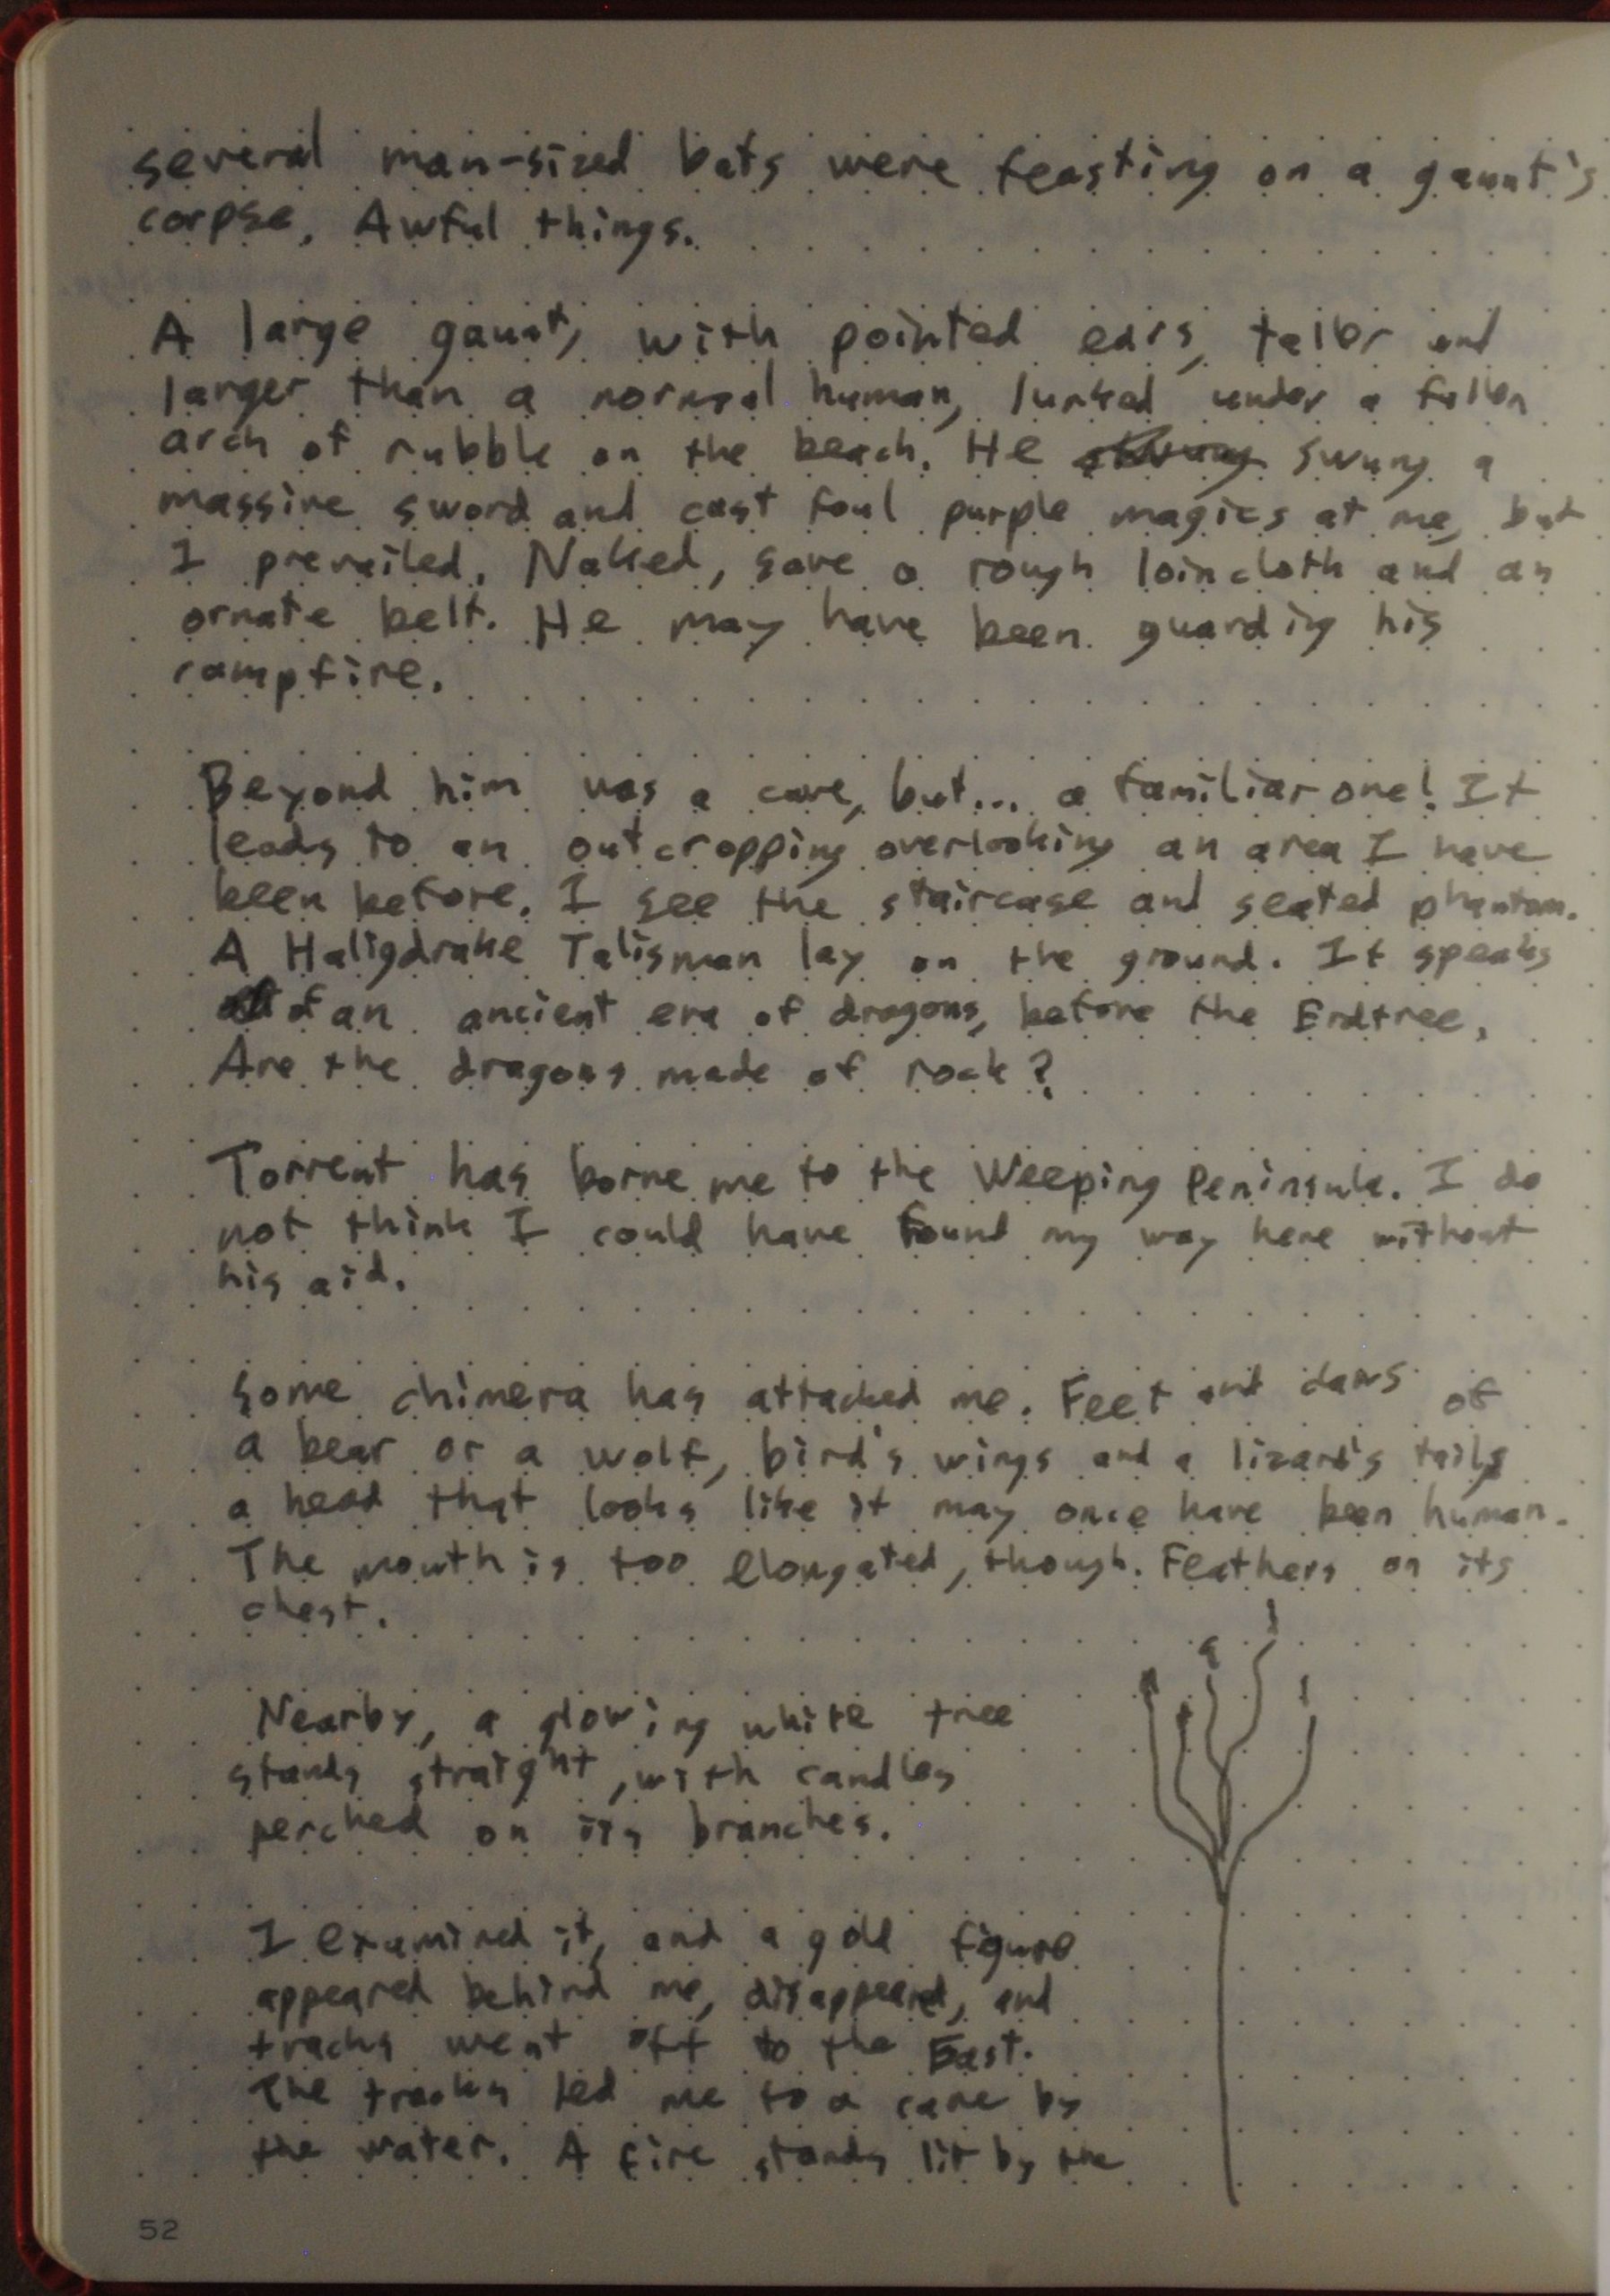 several man-sized bats were feasting on a gaunt's
corpse. Awful things.
A large gaunt, with pointed ears, taller and
larger than a normal human, lurked under a fallen
arch of rubble on the beach. He swung a
massive sword and cast foul purple magics at me, but
I prevailed. Naked, save a rough loincloth and an
ornate belt. He may have been guarding his
campfire.
Beyond him was a cave, but... a familiar one! It
leads to an outcropping overlooking an area I have
been before. I see the staircase and seated phantom.
A Haligdrake Talisman lay on the ground. It speaks
of an ancient era of dragons, before the Erdtree.
Are the dragons made of rock?
Torrent has borne me to the Weeping Peninsula. I do
not think I could have found my way here without
his aid.
Some chimera has attacked me. Feet and claws of
a bear or a wolf, bird's wings and a lizard's tail,
a head that looks like it may once have been human.
The mouth is too elongated, though. Feathers on its
chest.
Nearby, a glowing white tree
stands straight, with candles
perched on its branches.
I examined it, and a gold figure
appeared behind me, disappeared, and
tracks went off to the East.
The tracks led me to a cave by
the water. A fire stands lit by the
52